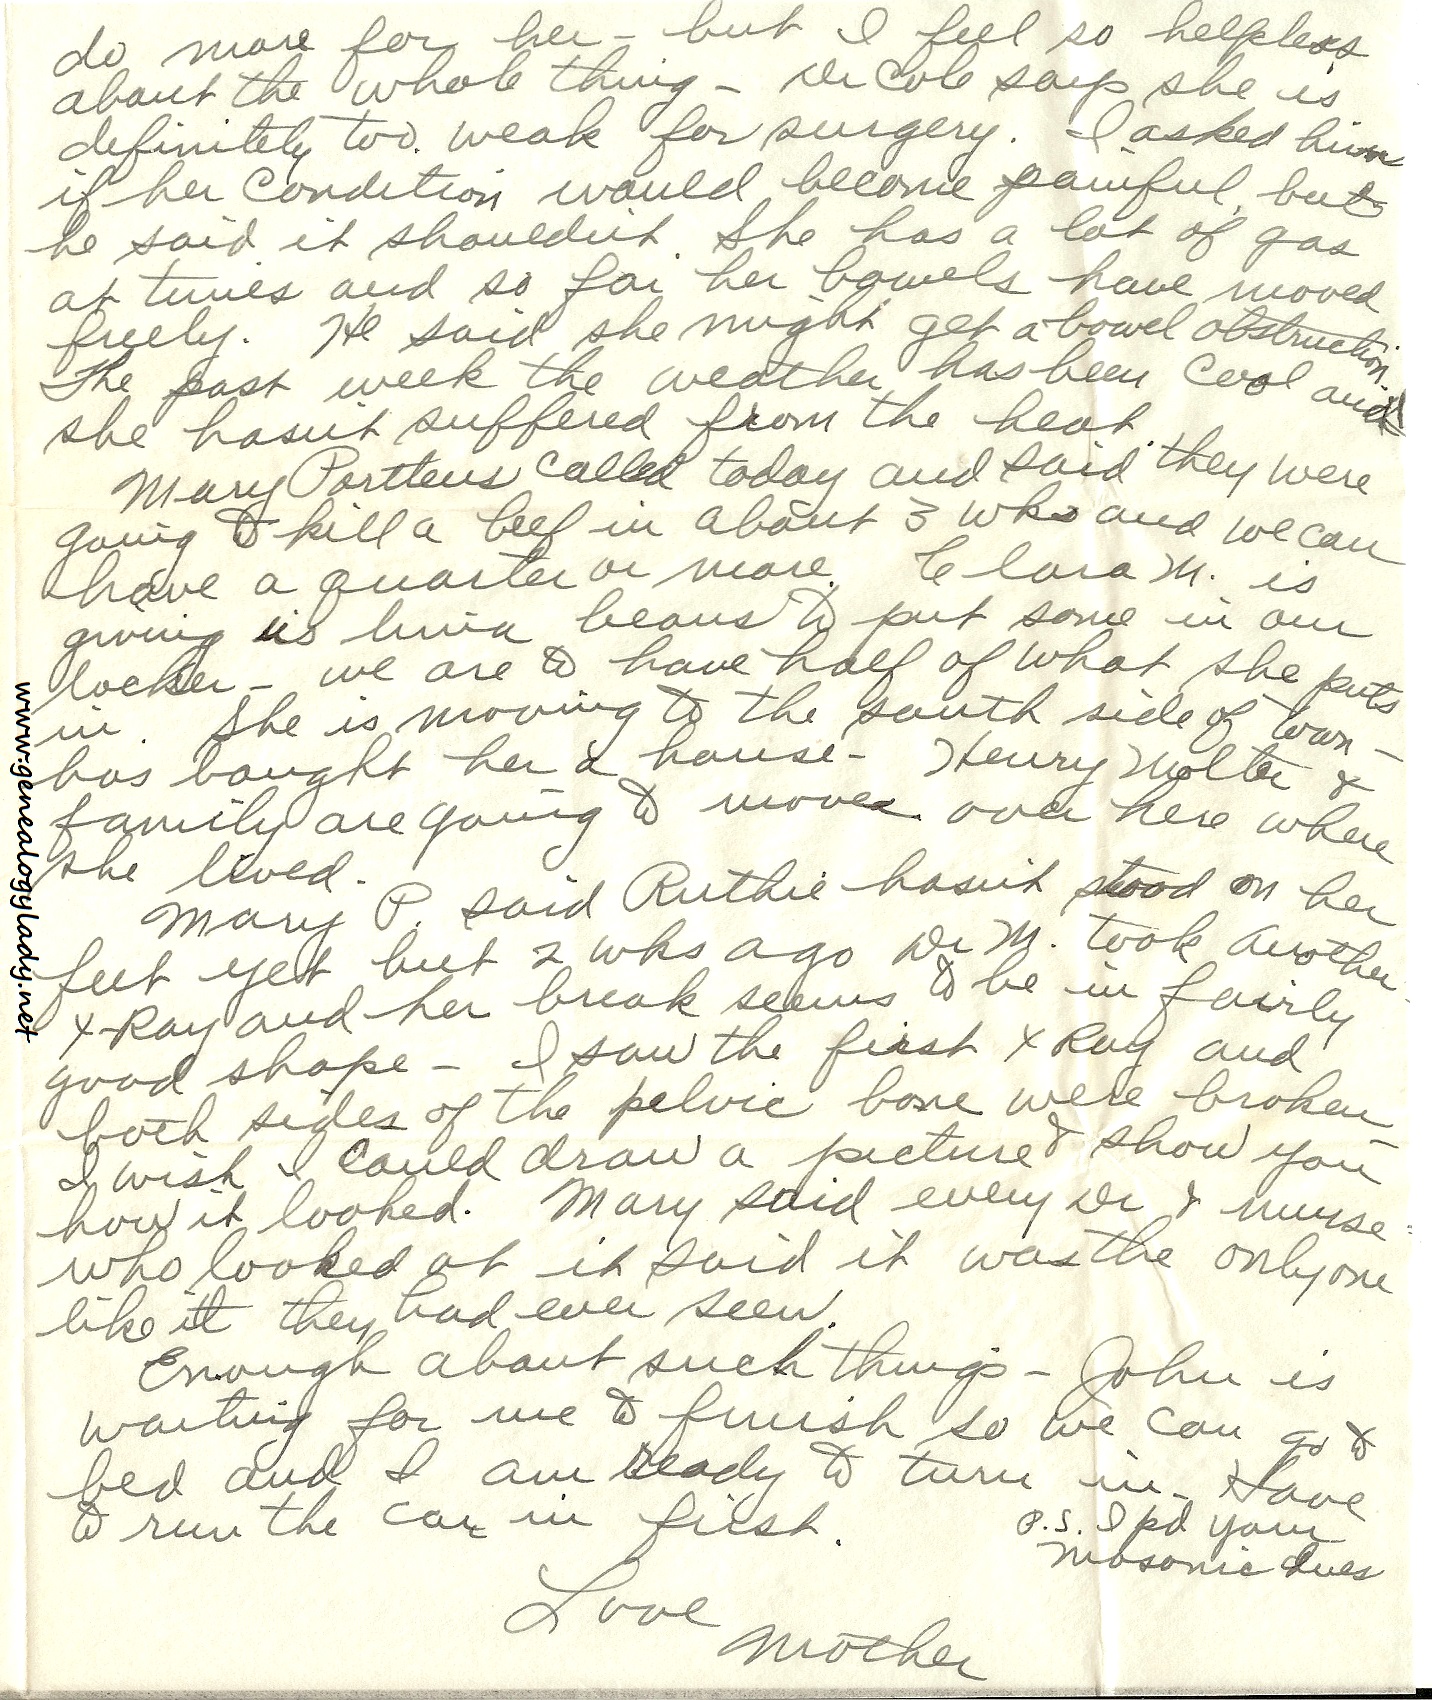 do more for her - but I feel so helpless
about the whole thing - Dr Cole says she is
definitely too weak for surgery. I asked him
if her condition would become painful, but
he said it shouldn't. She has a lot of gas
at times and so far her bowels have moved
freely. He said she might get a bowel obstruction.
The past week the weather has been cool and
she hasn't suffered from the heat.
Mary Portteus called today and said they were
going to kill a beef in about 3 wks and we can
have a quarter or more. Clara M. is
giving us lima beans to put some in our
locker - we are to have half of what she puts
in. She is moving to the south side of town -
has bought her a house - Henry Molter &
family are going to move over here where
she lived.
Mary P. said Ruthie hasn't stood on her
feet yet but 2 wks ago Dr M. took another
X-Ray and her break seems to be in fairly
good shape - I saw the first X Ray and
both sides of the pelvic bone were broken -
I wish I could draw a picture & show you
how it looked. Mary said every Dr & nurse
who looked at it said it was the only one
like it they had ever seen.
Enough about such things - John is
waiting for me to finish so we can go to
bed and I am ready to turn in. Have
to run the car in first.
P.S. I pd your
Masonic dues
Love
Mother
www.genealogylady.net